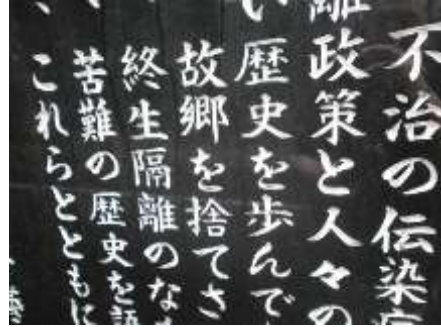 不治の伝染病
離政策と人々の
い歴史を歩んで
故郷を捨てさ
、終生隔離のなか
苦難の歴史を語
、これらとともに